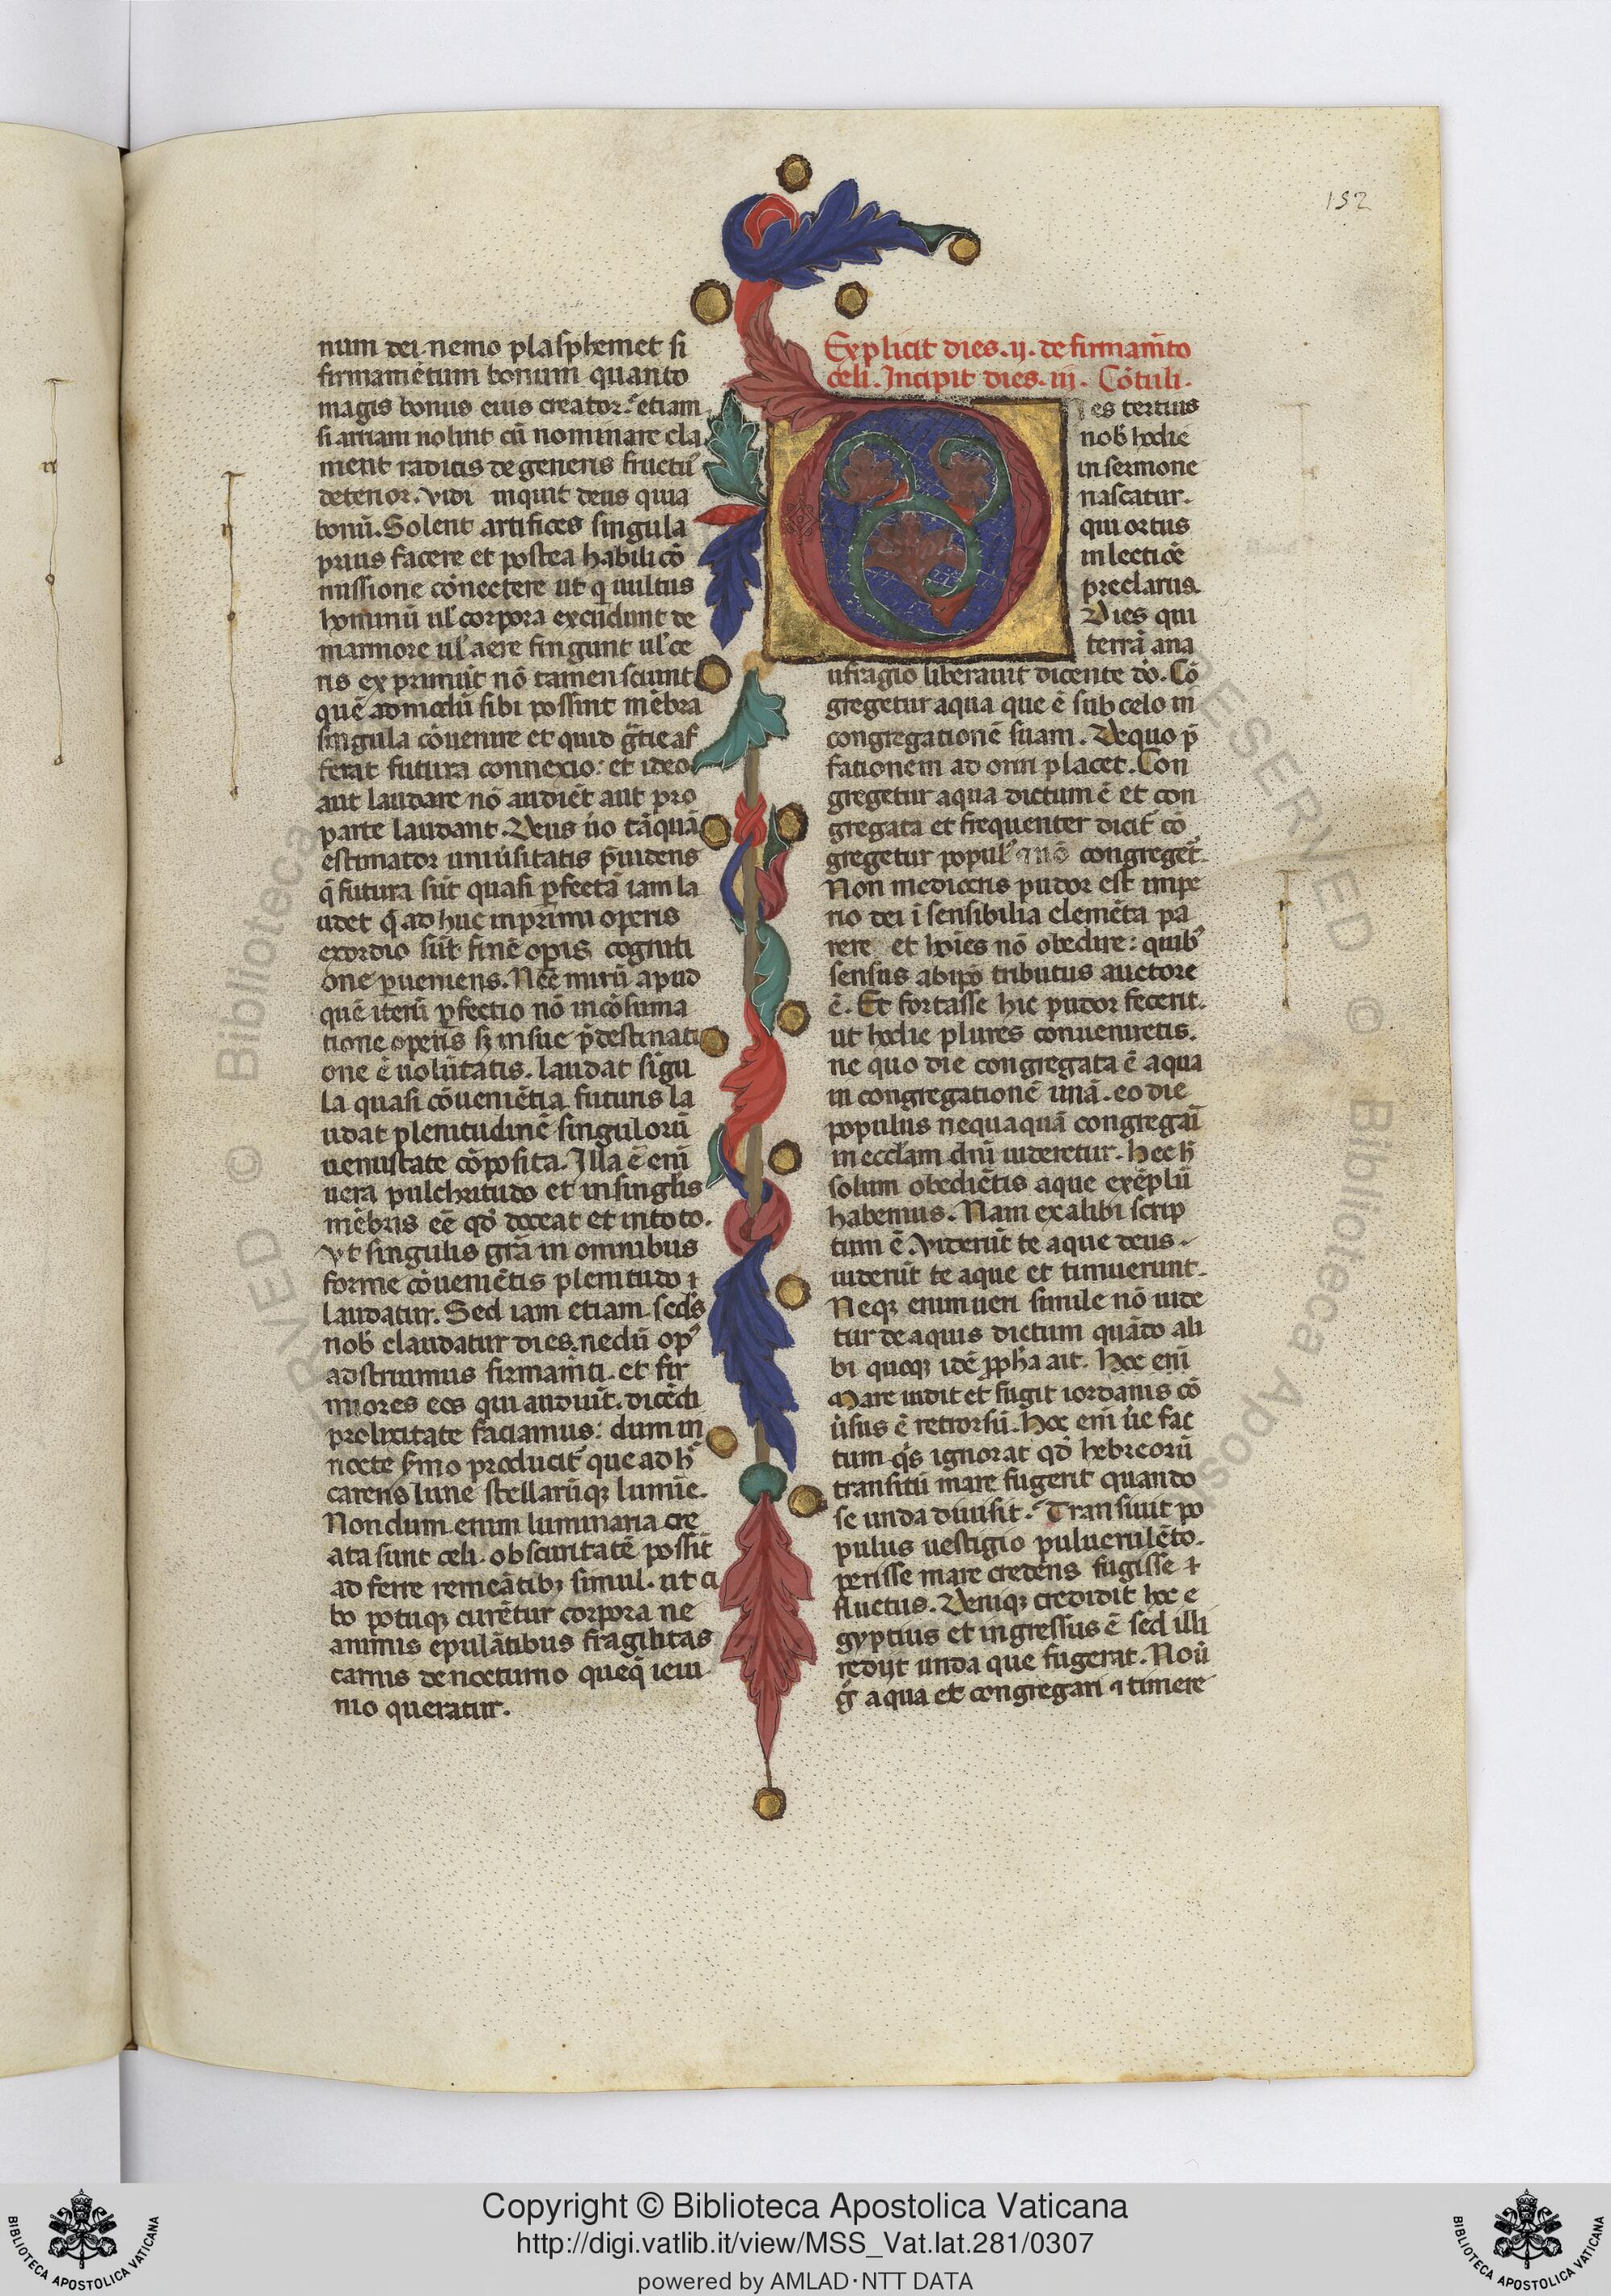 152
num dei nemo plasphemet si
firmamētum bonum quanto
magis bonus eius creator. etiam
si arriani nolint cū nominare cla
ment radicis degeneris fructū
deterior. vidi inquit deus quia
bonū. Solent artifices singula
prius facere et postea habili cō
missione cōnectere ut q̄ uultus
hominū ul' corpora excudunt de
marmore ul' aere fingunt ul' ce
ris exprimūt nō tamen sciunt
quē admodū sibi possint mēbra
singula cōuenire et quid gr̄tie af
ferat futura connexio: et ideo
aut laudare nō audiēt aut pro
parte laudant. Deus ūo tāquā
estimator uniūsitatis p̄uidens
q̄ futura sūt quasi ꝑfecta iam la
udet q̄ ad huc in primi operis
exordio sūt finē opis cogniti
one ꝑueniens. Nec mirū apud
quē iterū ꝑfectio nō in cōsuma
tione operis sꝫ in sue p̄destinati
one ē uolūtatis. laudat sīgu
la quasi cōueniētia futuris la
udat plenitudinē singulorū
uenustate cōposita. Illa ē eni
uera pulchritudo et in singlis
mēbris eē qd̄ deceat et in toto.
vt singulis gra in omnibus
forme cōueniētis plenitudo ⁊
laudatur. Sed iam etiam seds
nob' claudatur dies. nedū op'
adstruimus firmam̄ti. et fir
miores eos qui audiūt. dicēdi
prolixitate faciamus: dum in
nocte s̄mo producit' que ad h'
carens lune stellarūqꝫ lumīe.
Nondum enim luminaria cre
ata sunt celi. obscuritatē possit
ad ferre remeātibꝫ simul. ut ci
bo potuqꝫ curētur corpora ne
animis epulātibus fragilitas
carnis de nocturno queq̄ ieiu
nio queratur.
Explicit dies. ij. de firmam̄to
celi. Incipit dies. iij. Cōtuli.
es tertius
nob' hodie
in sermone
nascatur.
qui ortus
in lectiōe
preclarus.
Dies qui
terrā a na
ufragio liberauit dicente dō. Cō
gregetur aqua que ē sub celo in
congregationē suam. De quo p̄
fationem ad oriri placet. Con
gregetur aqua dictum ē et con
gregata et frequenter dicit' cō
gregetur popul' ⁊ nō congreget'.
Non mediocris pudor est impe
rio dei ī sensibilia elemēta pa
rere et hoīes nō obedire: quib'
sensus ab ipō tributus auctore
ē. Et fortasse hic pudor fecerit.
ut hodie plures conueniretis.
ne quo die congregata ē aqua
in congregationē unā. eo die
populus nequaquā congregari
in ecclam dnī uideretur. Nec h'
solum obediētis aque exēplū
habemus. Nam ex alibi scrip
tum ē. Viderūt te aque deus
uiderūt te aque et timuerunt.
Neqꝫ enim ueri simile nō uide
tur de aquis dictum quādo ali
bi quoqꝫ idē ppħa ait. Hoc eni
Mare uidit et fugit iordanis cō
ūsus ē retrorsū. Hoc eni ūe fac
tum q̄s ignorat qd̄ hebreorū
transitū mare fugerit quando
se unda diuisit. Transiuit po
pulus uestigio puluerulēto.
perisse mare credens fugisse ⁊
fluctus. Deniqꝫ credidit hoc e
gyptius et ingressus ē sed illi
redijt unda que fugerat. Noū
ḡ aqua et congregari ⁊ timere
Copyright © Biblioteca Apostolica Vaticana
http://digi.vatlib.it/view/MSS_Vat.lat.281/0307
powered by AMLAD·NTT DATA
BIBLIOTECA APOSTOLICA VATICANA
BIBLIOTECA APOSTOLICA VATICANA